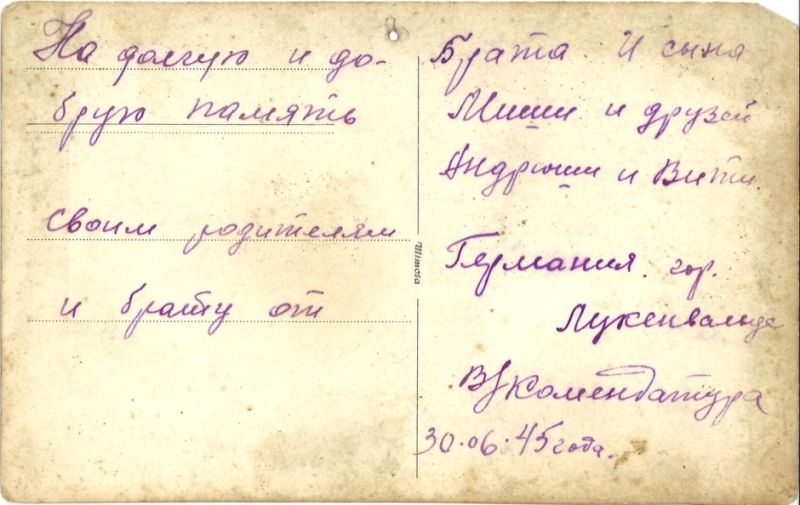 На долгую и до-
брую память
своим родителям
и брату от
Mimosa
Брата и сына
Миши и друзей
Андрюши и Вити.
Германия. гор.
Лукенвальде
В/Комендатура
30.06.45 года.